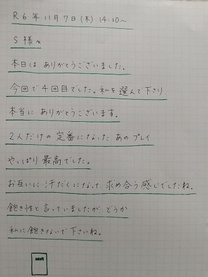 R6年 11月7日(木) 14:10〜
S様へ
本日は ありがとうございました。
今回で 4回目でした。私を 選んで 下さり
本当に ありがとうございます。
2人だけの 定番になった あのプレイ
やっぱり 最高でした。
お互いに 汗だくになって 求め合う感じでしたね。
飽き性と 言っていましたが どうか
私に 飽きないで 下さいね。